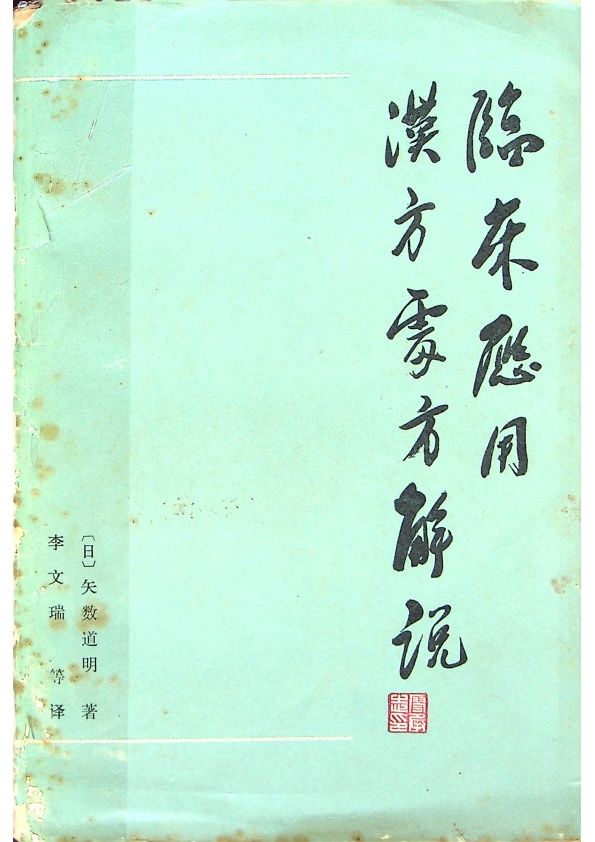 臨床應用
漢方處方解説
〔日〕矢数道明 著
李文瑞 等译